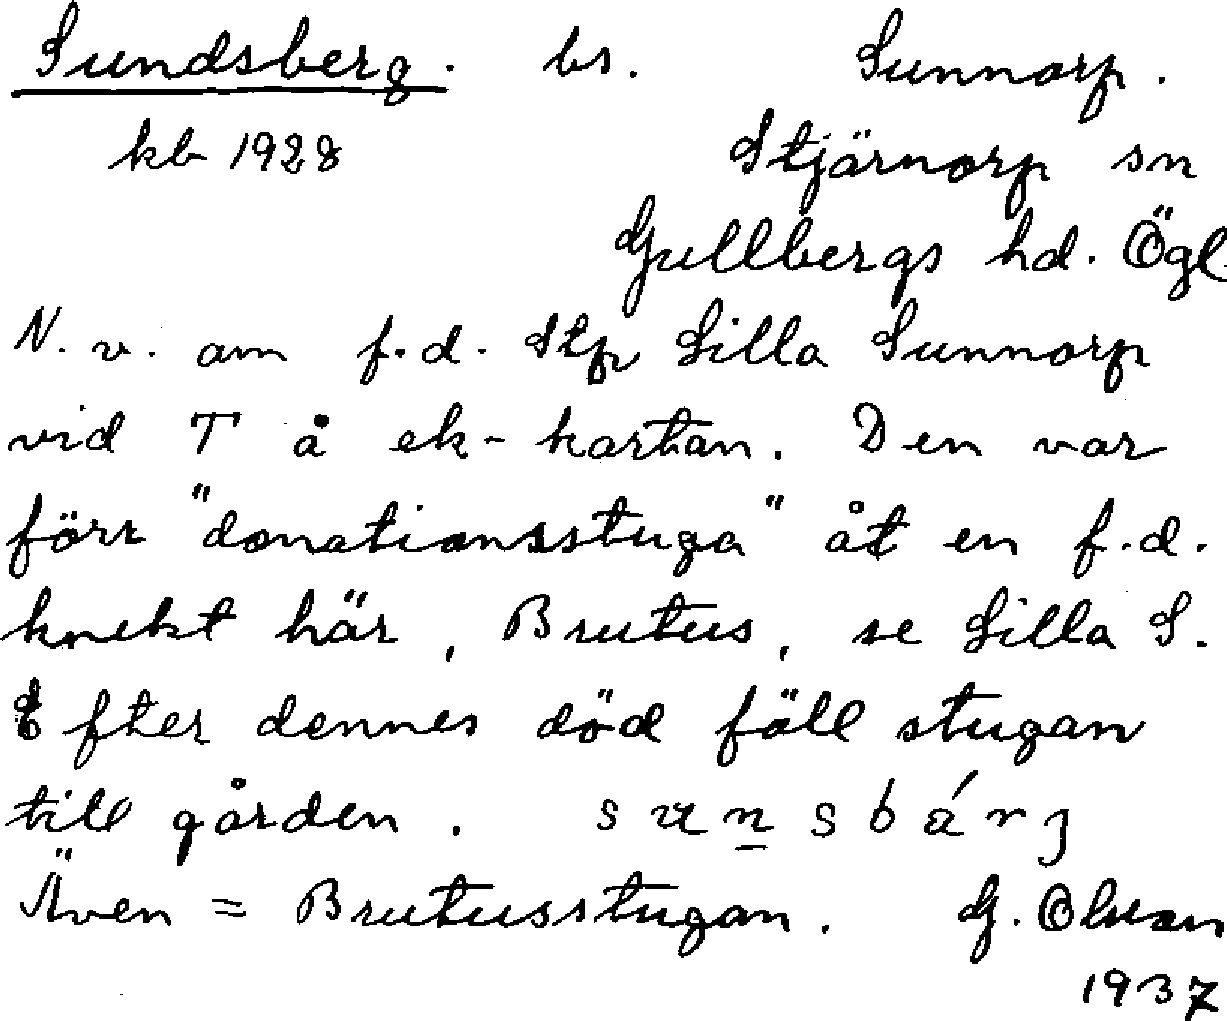 Sundsberg. bs. Sunnorp.
kb 1928 Stjärnorp sn
Gullbergs hd. Ögl.
N. v. om f.d. Stp Lilla Sunnorp
vid T å ek-kartan. Den var
förr "donationsstuga" åt en f.d.
knekt här, Brutus, se Lilla S.
Efter dennes död föll stugan
till gården.
Även = Brutusstugan. G. Olson
1937